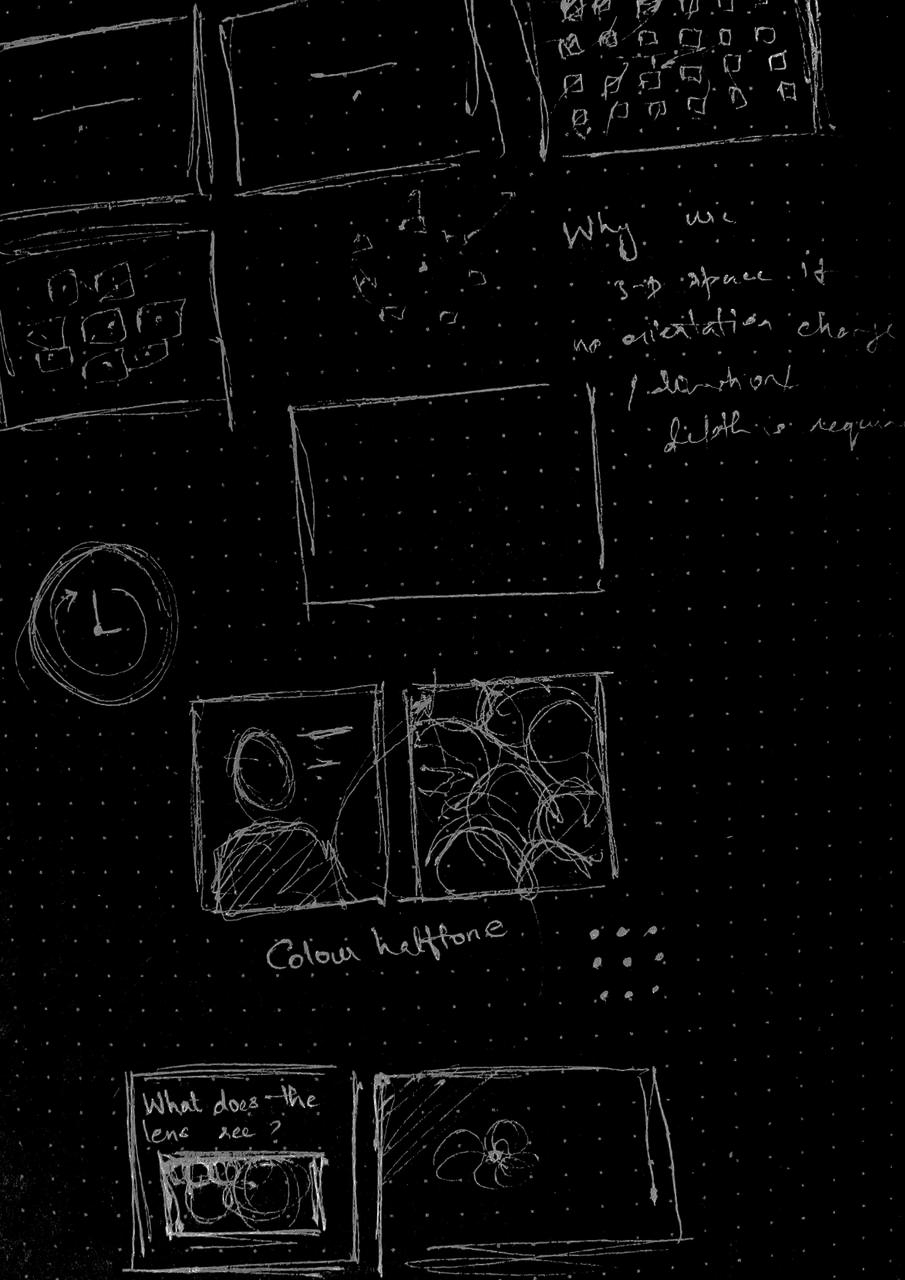 Why use
3-D space if
no orientation change
/ direction/
depth is requir
Colour halftone
What does the
lens see ?